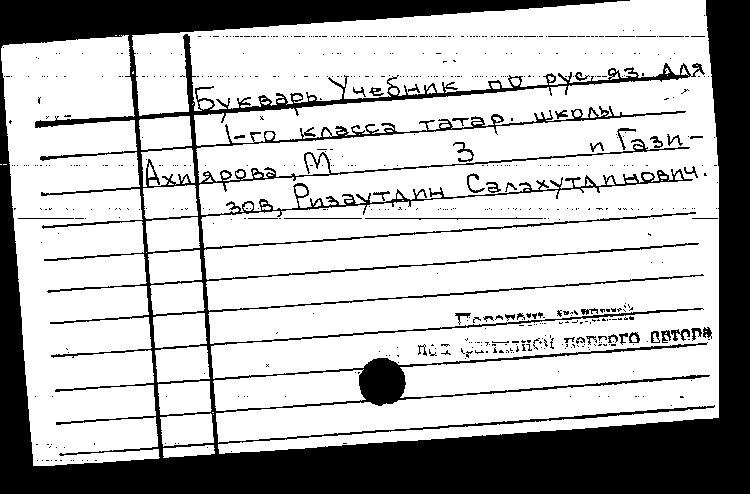 Букварь. Учебник по рус. яз. для
1-го класса татар. школы.
Ахиярова, М З и Гази-
зов, Ризаутдин Салахутдинович.
под фамилией первого автора